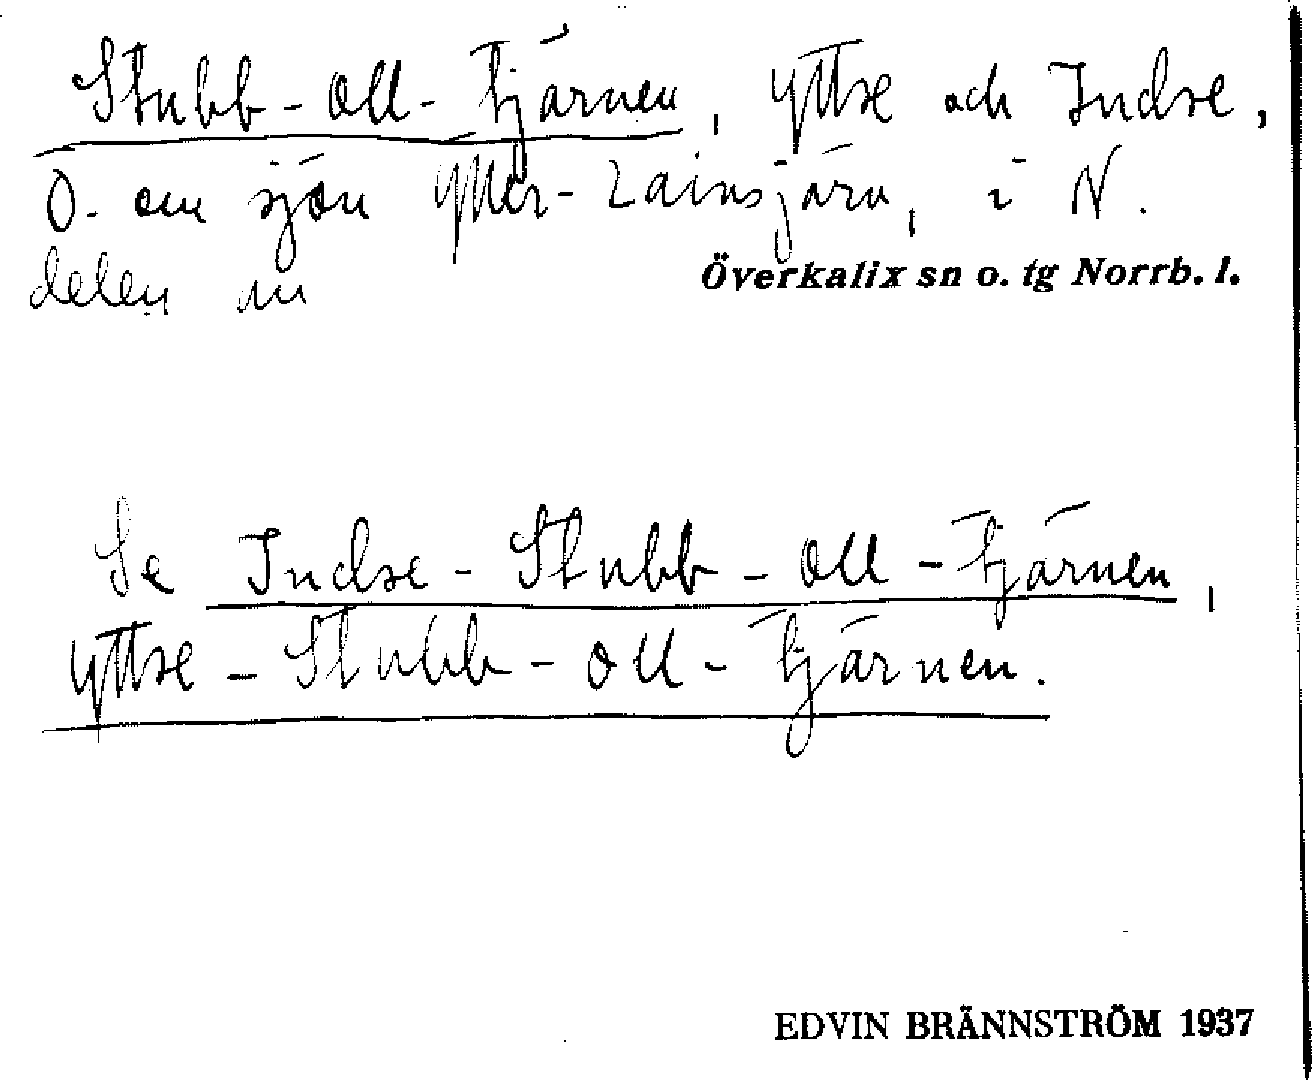 Stubb-Oll-tjärnen, Yttre och Indre,
O. om sjön Ytter-Lainsjärv, i N.
delen av
Överkalix sn o. tg Norrb. l.
Se Indre-Stubb-Oll-tjärnen,
Yttre-Stubb-Oll-tjärnen.
EDVIN BRÄNNSTRÖM 1937